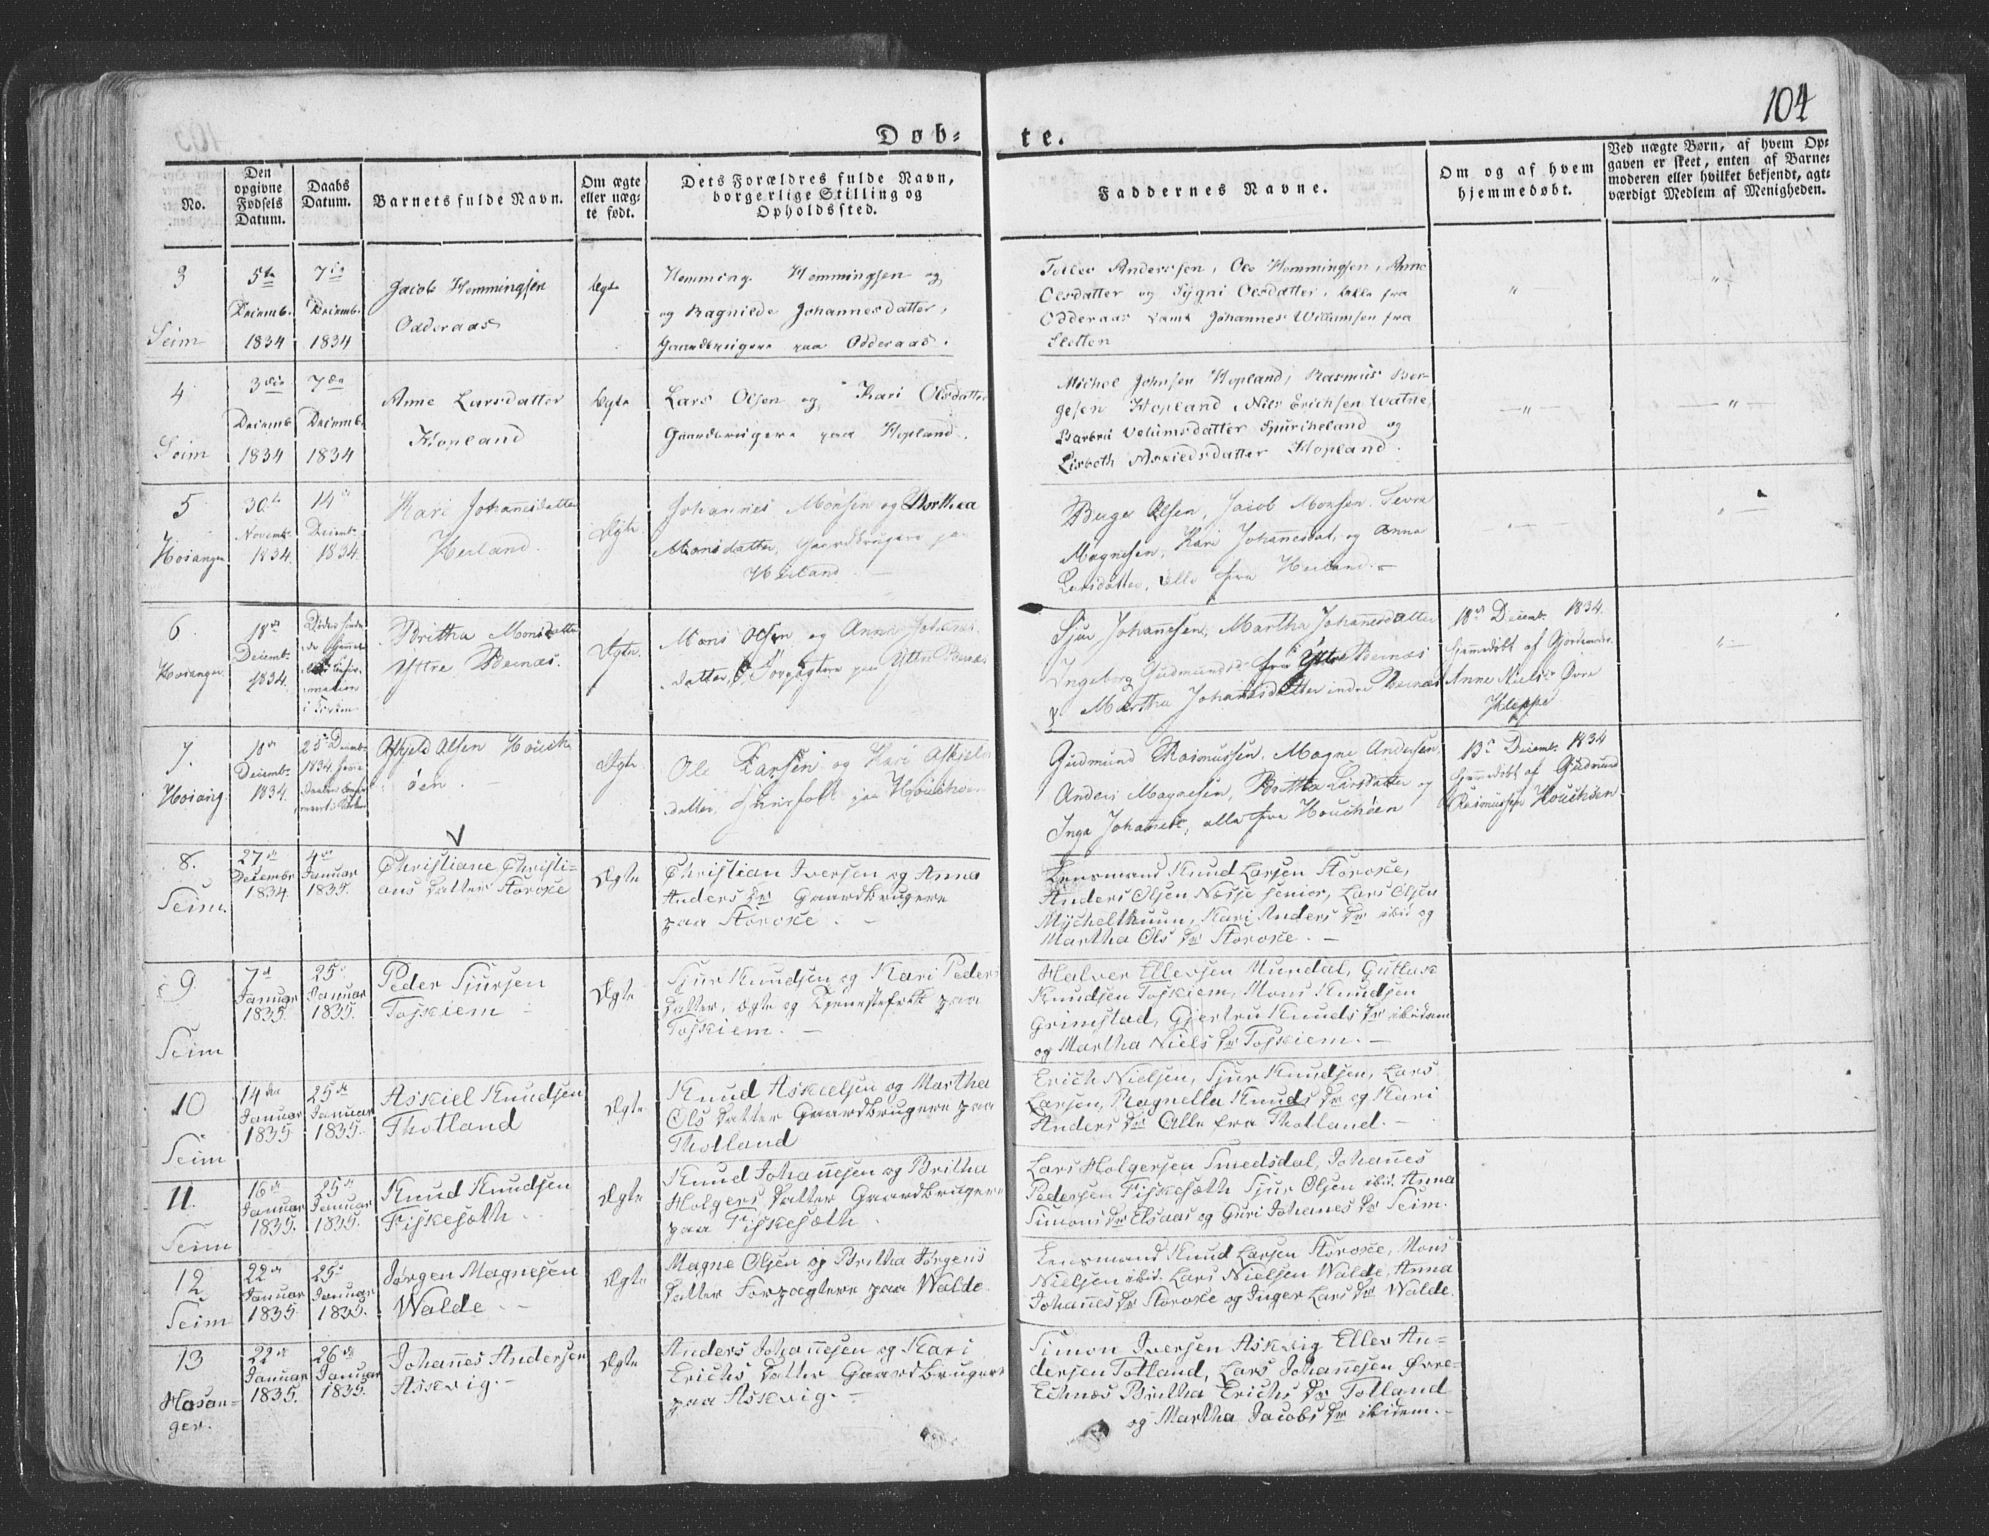 104
Døb- te.
No.
Den opgivne Fødsels Datum.
Daabs Datum.
Barnets fulde Navn.
Om ægte eller uægte født.
Dets Forældres fulde Navn, borgerlige Stilling og Opholdssted.
Faddernes Navne.
Om og af hvem hjemmedøbt.
Ved uægte Børn, af hvem Opgaven er skeet, enten af Barnemoderen eller hvilket bekjendt, agtværdigt Medlem af Menigheden.
3
Seim
5te
Decemb.
1834
7de
Decemb.
1834
Jacob Hemmingsen
Odderaas
Ægte
Hemming Hemmingsen og
og Ragnilde Johannesdatter,
Gaardbrugere paa Odderaas.
Tellev Anderssen, Ole Hemmingsen, Anne
Olsdatter og Sygni Olsdatter, alle fra
Odderaas samt Johannes Willumsen fra
Sletten
4
Seim
3die
Decemb
1834
7de
Decemb.
1834
Anne Larsdatter
Hopland
Ægte
Lars Olsen og Kari Olsdatter
Gaardbrugere paa Hopland.
Michel Johnsen Hopland, Rasmus Bør-
gesen Hopland, Nils Erichsen Watne,
Barbru Velumsdatter Spurcheland og
Lisbeth Askieldsdatter Hopland.
5
Hosanger
30te
Novemb.
1834.
14de
Decemb.
1834.
Kari Johannesdatter
Herland.
Ægte
Johannes Monsen og Dorthea
Monsdatter, Gaardbrugere paa
Herland.
Børge Olsen, Jacob Monsen, Sevre
Magnesen, Kari Johannesdat. og Anna
Larsdatter, alle fra Herland.
6
Hosanger
18de
Decemb.
1834.
Britha Monsdatter
Yttre Bernæs.
Ægte
Mons Olsen og Anna Johannes-
datter, Forpagtere paa Yttre Bernæs
Sjur Johannesen, Martha Johannesdatter
Ingeborg Gudmundsd. fra Yttre Bernæs
& Martha Johannesdatter indre Bernæs
18de Decemb. 1834.
hjemmedøbt af Gjordemoder
Anne Niels. Øvre
Kleppe
7.
Hosang.
Decemb.
1834.
25de Decemb.
1834
Askjeld Olsen Houck-
øen.
Ægte
Ole Larsen og Kari Askjelds-
datter, Huusfolk paa Houckøen
Gudmund Rasmussen, Magne Andersen,
Anders Magnesen, Britha Larsdatter og
Inga Johannesd., alle fra Houckøen
13de Decemb. 1834
hjemmedøbt af Gudmund
Rasmussen Houckøen
8.
Seim.
27de
Decembr
1834.
4de
Januar
1835.
Christiane Christi-
ans Datter Storoke
Ægte
Christian Iversen og Anna
Anders Dr Gaardbrugere
paa Storoke.
Lensmand Knud Larsen Storoke,
Anders Olsen Næsse senior, Lars Olsen
Mycheltuun, Kari Anders Dr ibid og
Martha Ols Dr Storoke.
9
Seim
7de
Januar
1835.
25de
Januar
1835.
Peder Sjursen
Toskiem
Ægte
Sjur Knudsen og Kari Peders
Datter, ægte og Tjenestefolk paa
Toskiem.
Halver Ellevsen Mundal, Guttorm
Knudsen Toskiem, Mons Knudsen
Grimstad, Gjertru Knuds Dr ibidem
og Martha Niels Dr Toskiem.
10
Seim
14de
Januar
1835
25de
Januar
1835.
Askiel Knudsen
Thotland
Ægte
Knud Askielsen og Martha
Ols Datter Gaardbrugere paa
Thotland
Erich Nielsen, Sjur Knudsen, Lars
Larsen, Ragnella Knuds Dr og Kari
Anders Dr Alle fra Thotland.
11.
Seim
16de
Januar
1835.
25de
Januar
1835.
Knud Knudsen
Fiskesæth.
Ægte
Knud Johannesen og Britha
Holgers Datter Gaardbrugere
paa Fiskesæth.
Lars Holgersen Smedsdal, Johannes
Pedersen Fiskesæth Sjur Olsen ibid. Anna
Simons Dr Elsaas og Guri Johannes Dr Seim.
12
Seim
22de
Januar
1835.
25de
Januar
1835.
Jørgen Magnesen
Walde
Ægte
Magne Olsen og Britha Jørgens
Datter Forpagtere paa Walde.
Lensmand Knud Larsen Storoke, Mons
Nielsen ibid. Lars Nielsen Walde, Anna
Johannes Dr Storoke og Inger Lars Dr Walde.
13
Hosan-
ger.
22de
Januar
1835.
26de
Januar
1835.
Johannes Andersen
Askvig.
Ægte
Anders Johannesen og Kari
Erichs Datter Gaardbrugere
paa Askvig.
Simon Iversen Askvig Ellev An-
dersen Totland, Lars Johannesen Øvre-
Echnæs Britha Erichs Dr Totland
og Martha Jacobs Dr ibidem.